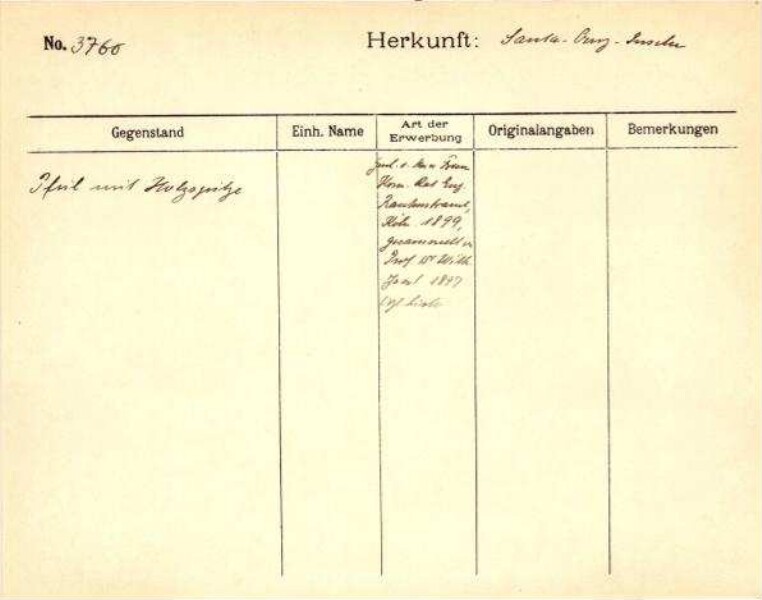 No. 3760
Herkunft: Santa-Cruz-Inseln
Gegenstand
Einh. Name
Art der
Erwerbung
Originalangaben
Bemerkungen
Pfeil mit Holzspitze
Gesch. v. Frau
Kom. Rat Eug.
Rautenstrauch,
Köln 1899,
gesammelt v.
Prof Dr Wilh.
Joest 1897